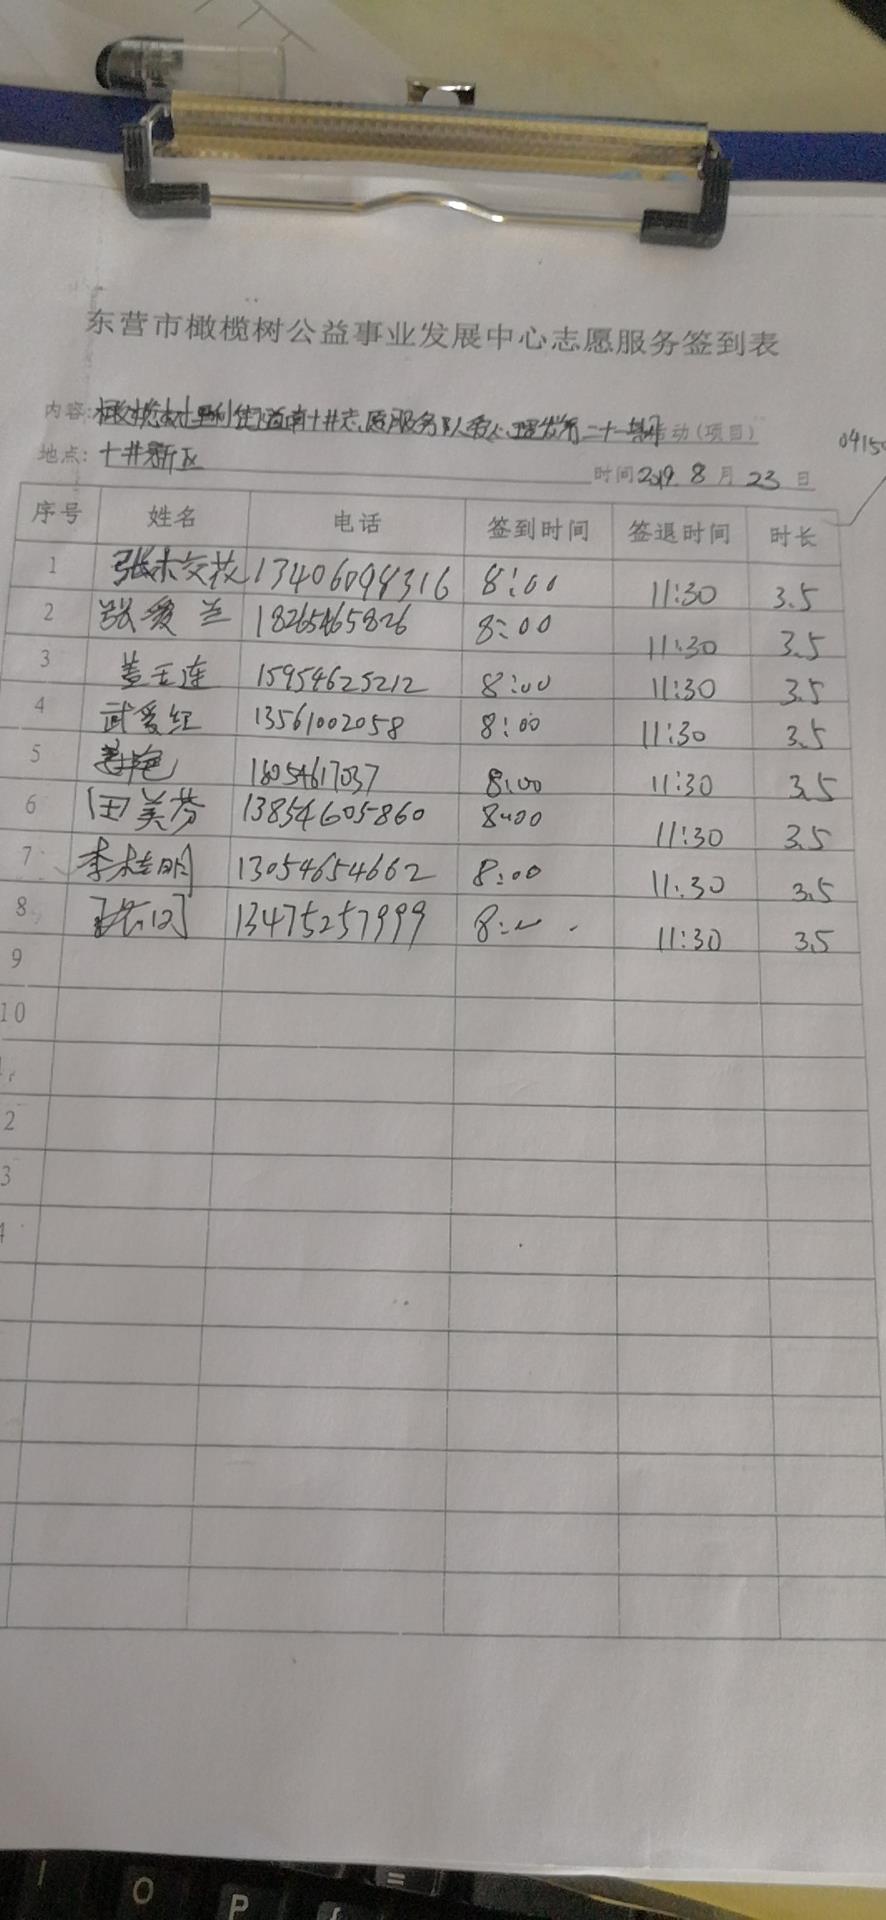 东营市橄榄树公益事业发展中心志愿服务签到表
内容:橄榄树垦利街道南十井志愿服务队爱心理发第二十一期活动(项目)
0415
地点:十井新区 时间2019 8月23日
序号 姓名 电话 签到时间 签退时间 时长
1 张 13406098316 8:00 11:30 3.5
2 张爱兰 18265465826 8:00 11:30 3.5
3 盖玉连 15954625212 8:00 11:30 3.5
4 武爱红 13561002058 8:00 11:30 3.5
5 18054617037 8:00 11:30 3.5
6 田美芬 13854605860 8:00 11:30 3.5
7 李桂明 13054654662 8:00 11:30 3.5
8 13475257999 8: 11:30 3.5
9
10
2
3
I O P { =